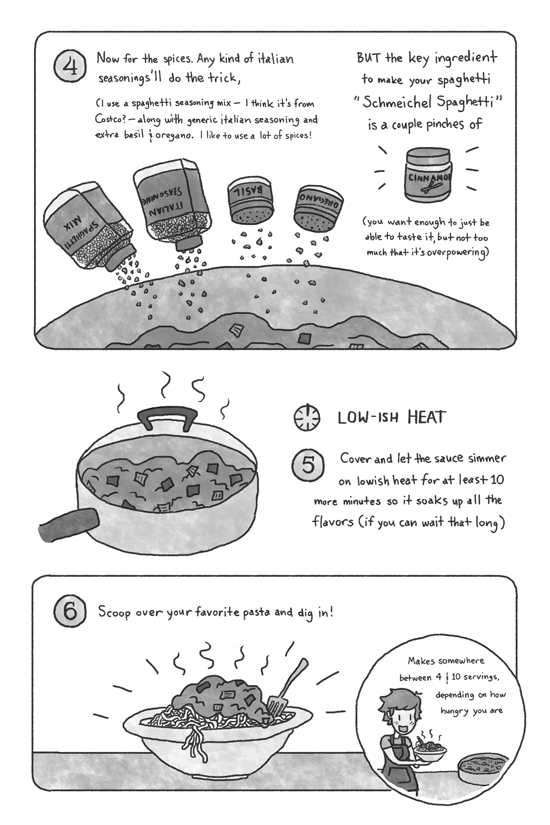 4
Now for the spices. Any kind of italian
seasonings'll do the trick,
(I use a spaghetti seasoning mix — I think it's from
Costco? — along with generic italian seasoning and
extra basil & oregano. I like to use a lot of spices!
BUT the key ingredient
to make your spaghetti
"Schmeichel Spaghetti"
is a couple pinches of
CINNAMON
(you want enough to just be
able to taste it, but not too
much that it's overpowering)
SPAGHETTI
MIX
ITALIAN
SEASONING
BASIL
OREGANO
LOW-ISH HEAT
5
Cover and let the sauce simmer
on lowish heat for at least 10
more minutes so it soaks up all the
flavors (if you can wait that long)
6
Scoop over your favorite pasta and dig in!
Makes somewhere
between 4 & 10 servings,
depending on how
hungry you are